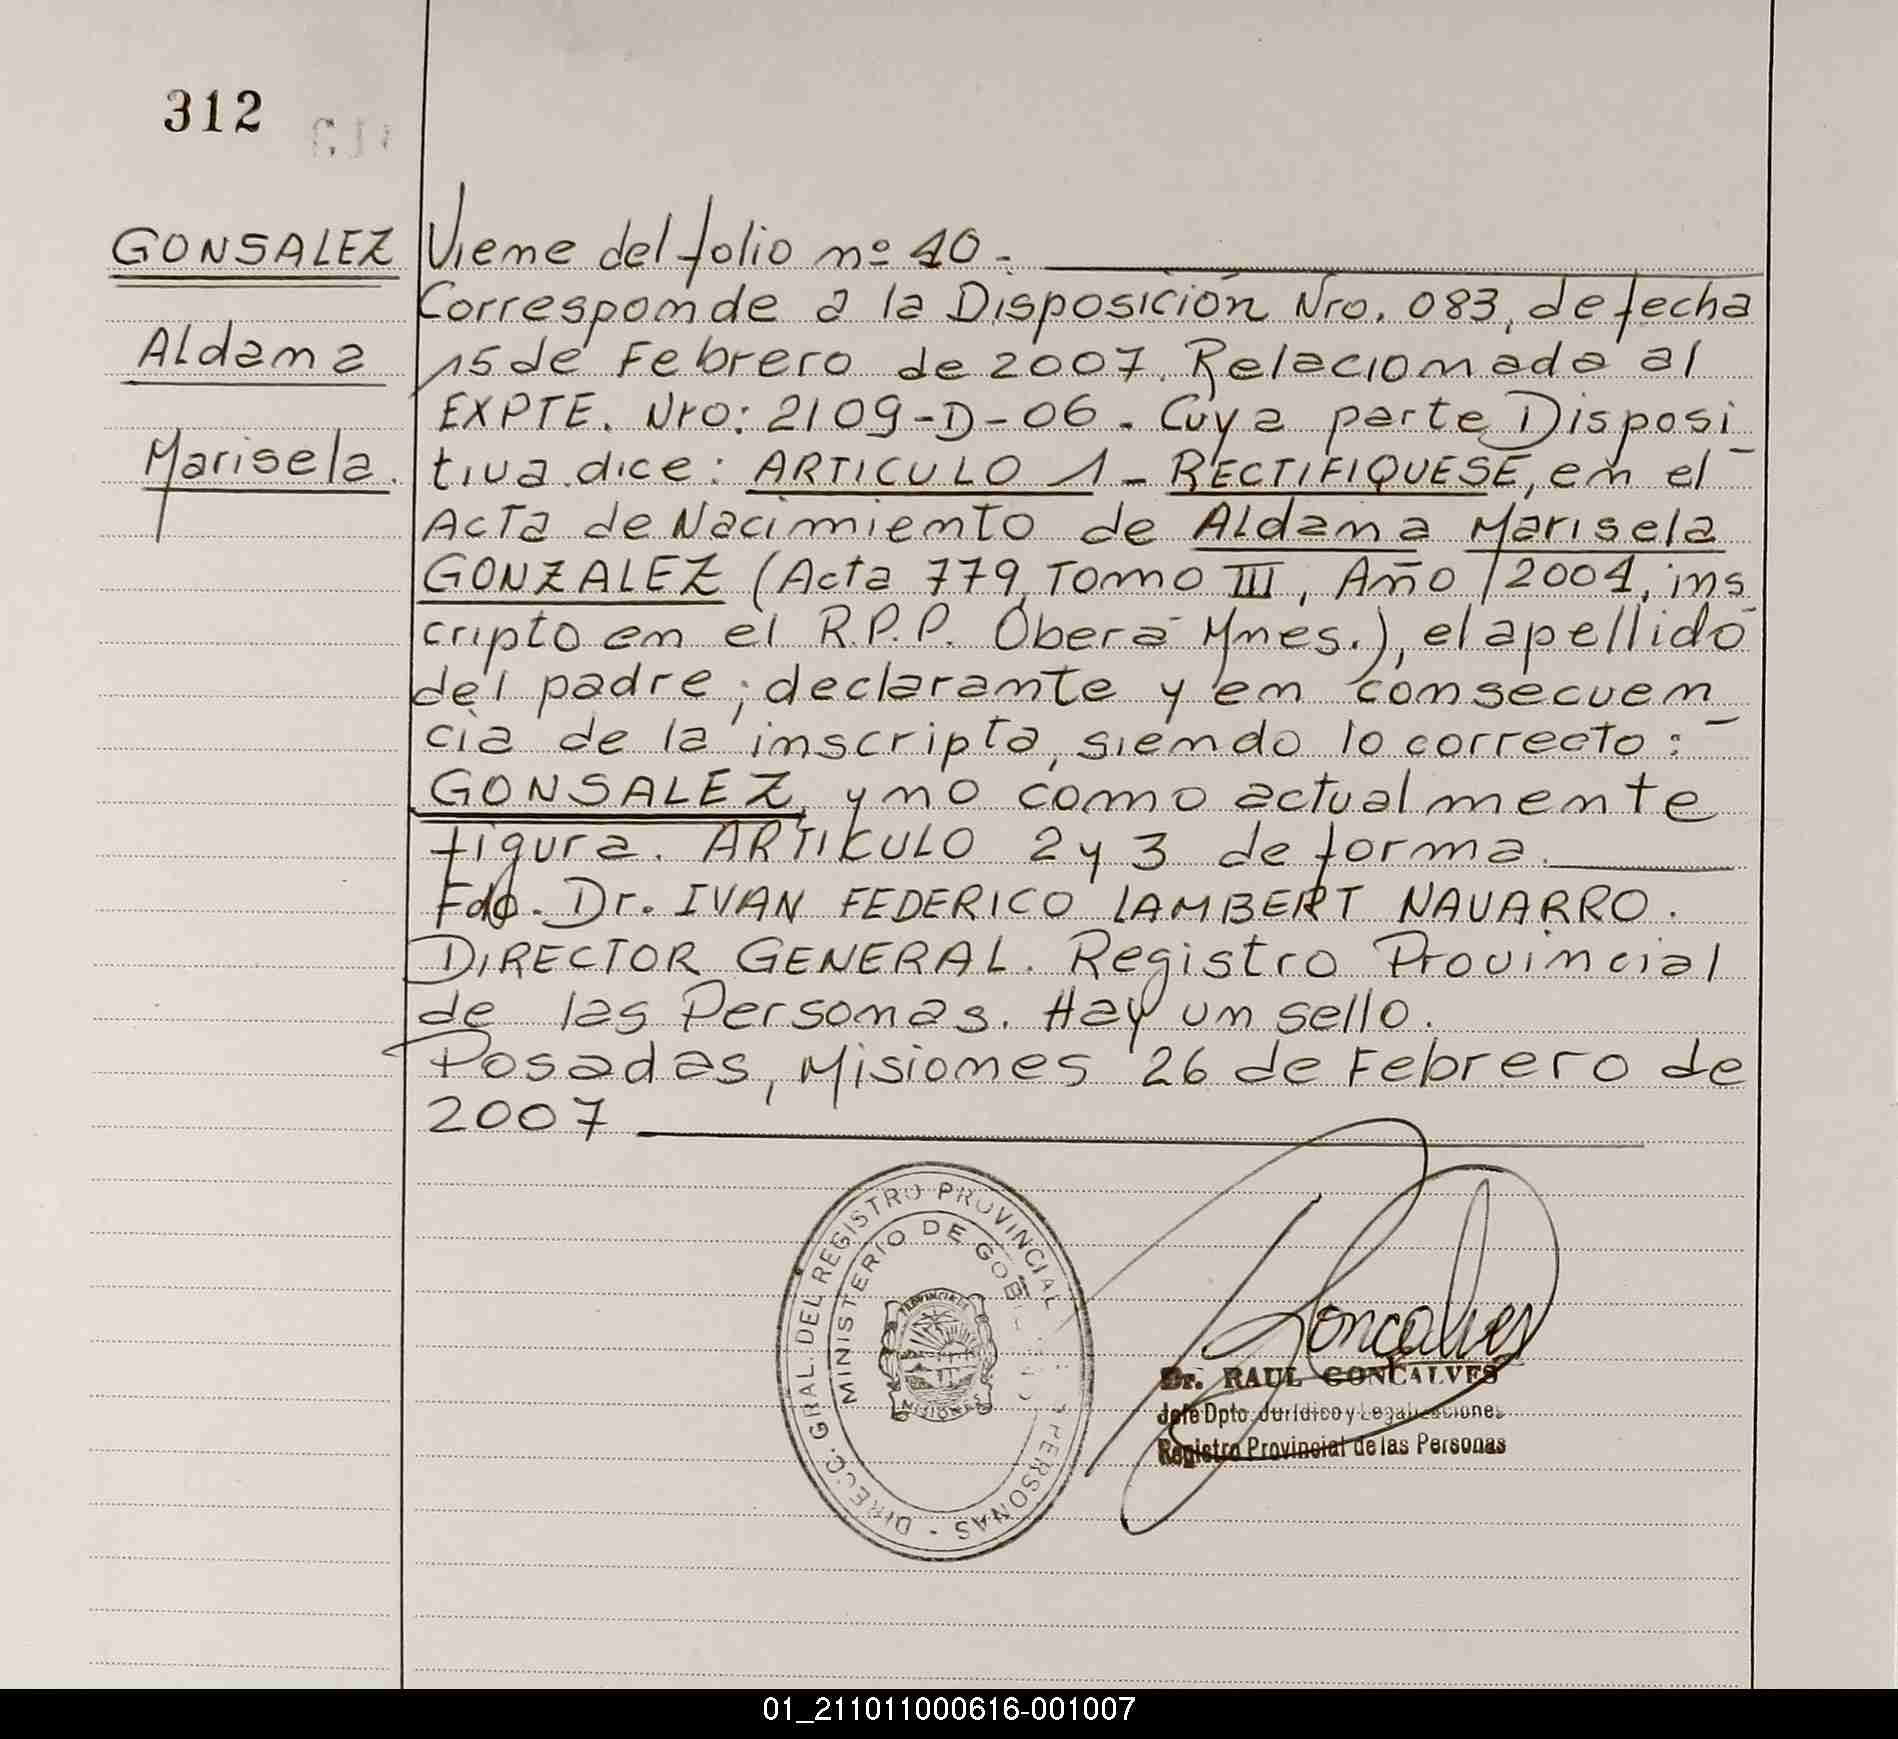 312
GONSALEZ
Aldama
Marisela.
Viene del folio nº 40.-
Corresponde a la Disposición Nro. 083, de fecha
15 de Febrero de 2007. Relacionada al
EXPTE. Nro: 2109-D-06. Cuya parte Disposi
tiva dice: ARTICULO 1 - RECTIFIQUESE, en el
Acta de Nacimiento de Aldama Marisela
GONZALEZ (Acta 779, Tomo III, Año / 2004, ins
cripto en el R.P.P. Oberá Mnes.), el apellido
del padre, declarante y en consecuen
cia de la inscripta, siendo lo correcto:
GONSALEZ, y no como actualmente
figura. ARTICULO 2 y 3 de forma.
Fdo. Dr. IVAN FEDERICO LAMBERT NAVARRO.
DIRECTOR GENERAL. Registro Provincial
de las Personas. Hay un sello.
Posadas, Misiones 26 de Febrero de
2007
DIRECC. GRAL. DEL REGISTRO PROVINCIAL PERSONAS -
MINISTERIO DE GOB
PROVINCIA DE
MISIONES
Goncalves
Dr. RAUL GONCALVES
Jefe Dpto. Jurídico y Legalizaciones
Registro Provincial de las Personas
01_211011000616-001007